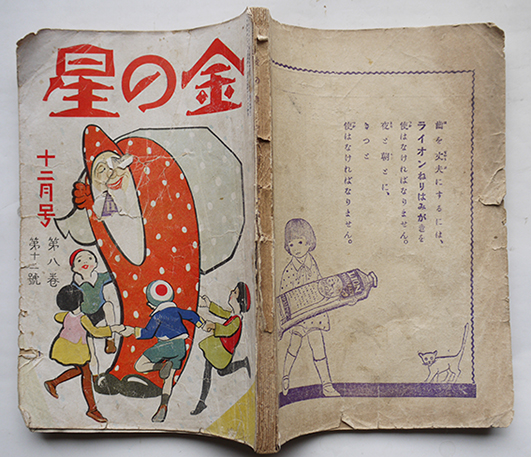 金の星
十二月号
第八巻
第十二號
歯を丈夫にするには、
ライオンねりはみがきを
使はなければなりません。
夜と朝とに、
きつと
使はなければなりません。